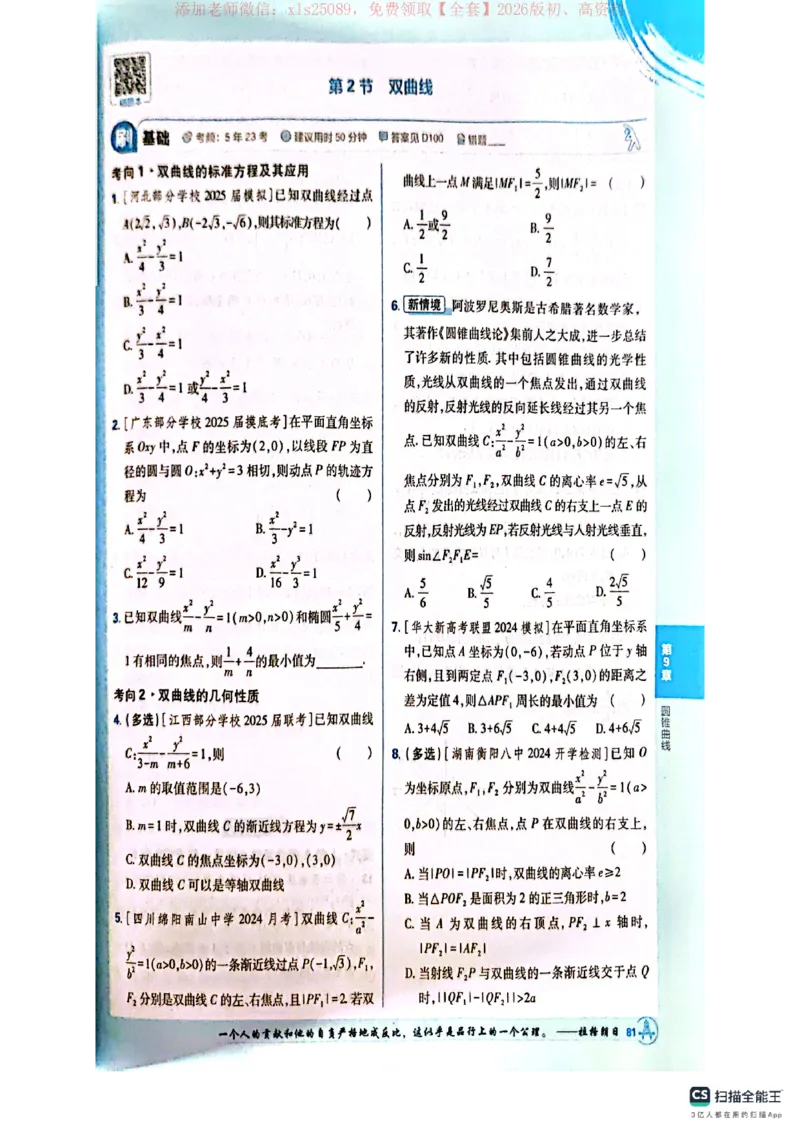 添加老师微信：xls25089，免费领取【全套】2026版初、高资
第2节 双曲线
刷 基础 考频：5年23考 建议用时50分钟 答案见D100 错题___
考向1·双曲线的标准方程及其应用
1.[河北部分学校2025届模拟]已知双曲线经过点
A(2√2,√3),B(-2√3,-√6),则其标准方程为( )
A. x²/4-y²/3=1
B. x²/3-y²/4=1
C. y²/3-x²/4=1
D. x²/3-y²/4=1或y²/4-x²/3=1
2.[广东部分学校2025届摸底考]在平面直角坐标
系Oxy中,点F的坐标为(2,0),以线段FP为直
径的圆与圆O:x²+y²=3相切,则动点P的轨迹方
程为 ( )
A. x²/4-y²/3=1 B. x²/3-y²=1
C. x²/12-y²/9=1 D. x²/16-y³/3=1
3.已知双曲线x²/m-y²/n=1(m>0,n>0)和椭圆x²/5+y²/4=
1有相同的焦点,则1/m+4/n的最小值为______.
考向2·双曲线的几何性质
4.(多选)[江西部分学校2025届联考]已知双曲线
C:x²/(3-m)-y²/(m+6)=1,则 ( )
A. m的取值范围是(-6,3)
B. m=1时,双曲线C的渐近线方程为y=±√7/2x
C. 双曲线C的焦点坐标为(-3,0),(3,0)
D. 双曲线C可以是等轴双曲线
5.[四川绵阳南山中学2024月考]双曲线C:x²/a²-
y²/b²=1(a>0,b>0)的一条渐近线过点P(-1,√3),F₁,
F₂分别是双曲线C的左、右焦点,且|PF₁|=2.若双
曲线上一点M满足|MF₁|=5/2,则|MF₂|= ( )
A. 1/2或9/2 B. 9/2
C. 1/2 D. 7/2
6.新情境 阿波罗尼奥斯是古希腊著名数学家，
其著作《圆锥曲线论》集前人之大成,进一步总结
了许多新的性质.其中包括圆锥曲线的光学性
质,光线从双曲线的一个焦点发出,通过双曲线
的反射,反射光线的反向延长线经过其另一个焦
点.已知双曲线C:x²/a²-y²/b²=1(a>0,b>0)的左、右
焦点分别为F₁,F₂,双曲线C的离心率e=√5,从
点F₂发出的光线经过双曲线C的右支上一点E的
反射,反射光线为EP,若反射光线与入射光线垂直,
则sin∠F₂F₁E= ( )
A. 5/6 B. √5/5 C. 4/5 D. 2√5/5
7.[华大新高考联盟2024模拟]在平面直角坐标系
中,已知点A坐标为(0,-6),若动点P位于y轴
右侧,且到两定点F₁(-3,0),F₂(3,0)的距离之
差为定值4,则△APF₁周长的最小值为 ( )
A. 3+4√5 B. 3+6√5 C. 4+4√5 D. 4+6√5
8.(多选)[湖南衡阳八中2024开学检测]已知O
为坐标原点,F₁,F₂分别为双曲线x²/a²-y²/b²=1(a>
0,b>0)的左、右焦点,点P在双曲线的右支上,
则 ( )
A. 当|PO|=|PF₂|时,双曲线的离心率e≥2
B. 当△POF₂是面积为2的正三角形时,b=2
C. 当A为双曲线的右顶点,PF₂⊥x轴时,
|PF₂|=|AF₂|
D. 当射线F₂P与双曲线的一条渐近线交于点Q
时,||QF₁|-|QF₂||>2a
第9章
圆锥曲线
一个人的贡献和他的自负严格地成反比，这似乎是品行上的一个公理。——拉格朗日 81
CS 扫描全能王
3亿人都在用的扫描App